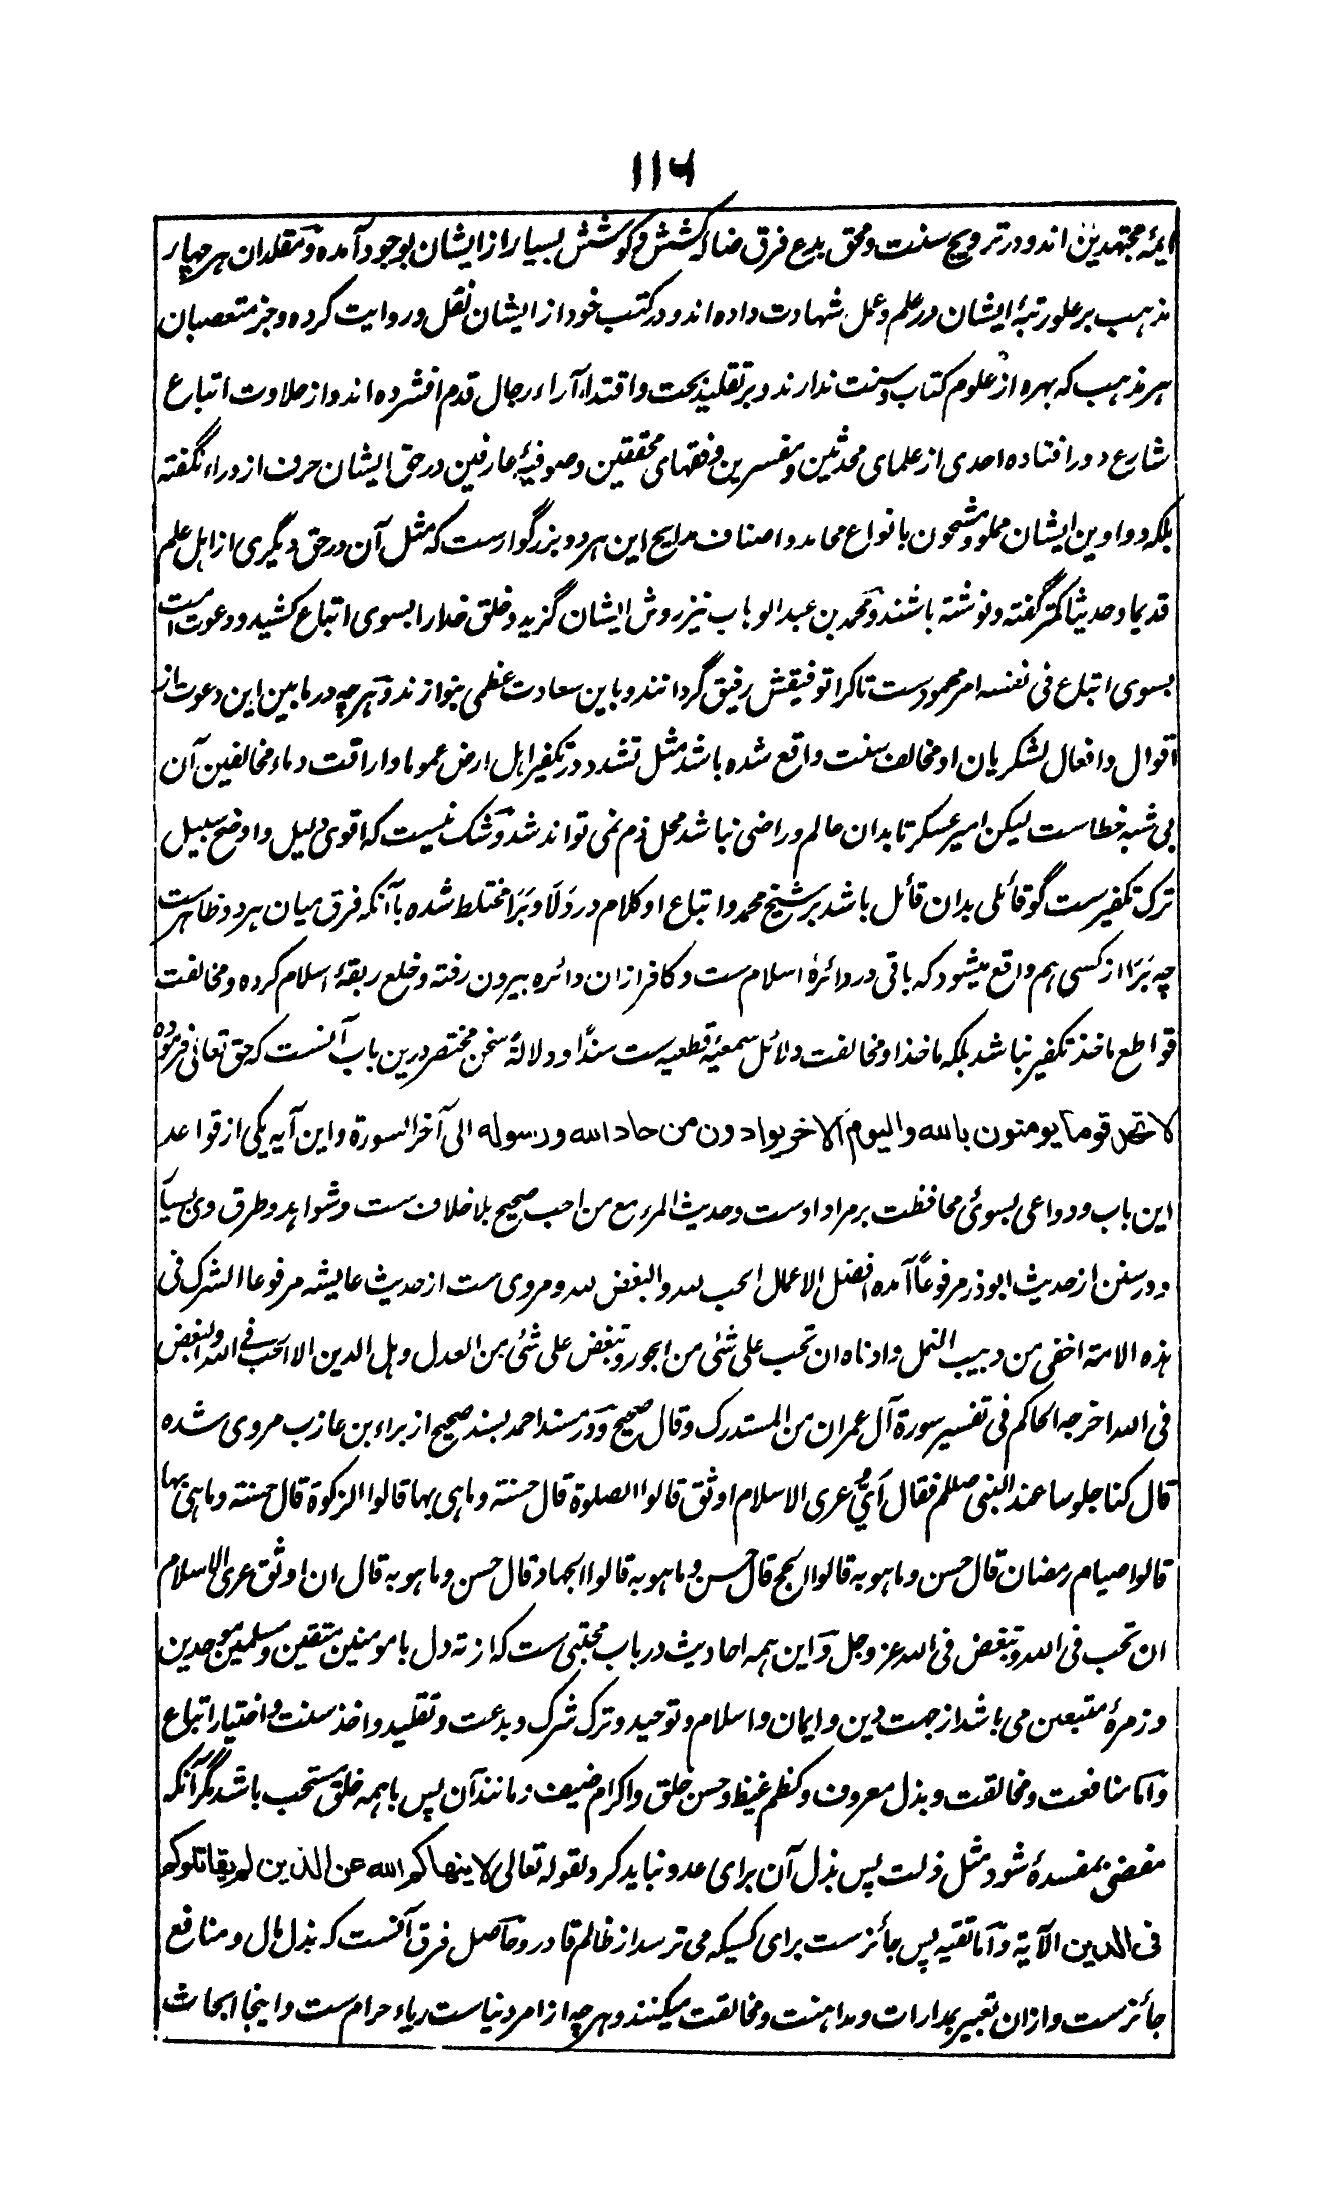 ۱۱۶
ایمۀ مجتهدین اند و در ترویج سنت و محق بدع فرق ضاله کشش و کوشش بسیار از ایشان بوجود آمده و مقلدان هر چهار
مذهب بر علو رتبۀ ایشان در علم و عمل شهادت داده اند و در کتب خود از ایشان نقل و روایت کرده و جز متعصبان
هر مذهب که بهره از علوم کتاب و سنت ندارند و بر تقلید بحت و اقتداء آراء رجال قدم افشرده اند و از حلاوت اتباع
شارع دور افتاده احدی از علمای محدثین و مفسرین و فقهای محققین و صوفیۀ عارفین در حق ایشان حرف ازدراء نگفته
بلکه دواوین ایشان مملو و مشحون بانواع محامد و اصناف مدایح این هر دو بزرگوارست که مثل آن در حق دیگری از اهل علم
قدیما و حدیثا کمتر گفته و نوشته باشند و محمد بن عبد الوهاب نیز روش ایشان گزید و خلق خدا را بسوی اتباع کشید و دعوت امت
بسوی اتباع فی نفسه امر محمودست تا کرا توفیقش رفیق گردانند و باین سعادت عظمی بنوازند و هر چه در مابین این دعوت از
اقوال و افعال لشکریان او مخالف سنت واقع شده باشد مثل تشدد در تکفیر اهل ارض عموما و اراقت دماء مخالفین آن
بی شبه خطاست لیکن امیر عسکر تا بدان عالم و راضی نباشد محل ذم نمی تواند شد و شک نیست که اقوی دلیل و اوضح سبیل
ترک تکفیرست گو قائلی بدان قائل باشد بر شیخ محمد و اتباع او کلام در وَلَا و بَرَا مختلط شده با آنکه فرق میان هر دو ظاهرست
چه بَرَا از کسی هم واقع میشود که باقی در دائرۀ اسلام ست و کافر ازان دائره بیرون رفته و خلع ربقۀ اسلام کرده و مخالفت
قواطع ماخذ تکفیر نباشد بلکه ماخذ او مخالفت دلائل سمعیۀ قطعیه ست سنداً و دلالۀ سخن مختصر درین باب آنست که حق تعالی فرموده
لا تجد قوما یومنون بالله والیوم الاخر یوادون من حاد الله ورسوله الی آخر السورة و این آیه یکی از قواعد
این باب و دواعی بسوی محافظت بر مراد اوست و حدیث المرء مع من احب صحیح بلا خلاف ست و شواهد و طرق وی بسیار
و در سنن از حدیث ابوذر مرفوعاً آمده افضل الاعمال الحب لله و البغض لله و مروی ست از حدیث عایشه مرفوعا الشرک فی
هذه الامة اخفی من دبیب النمل و ادناه ان تحب علی شئ من الجور و تبغض علی شئ من العدل و هل الدین الا الحب فی الله و البغض
فی الله اخرجه الحاکم فی تفسیر سورة آل عمران من المستدرک و قال صحیح و در مسند احمد بسند صحیح از براء بن عازب مروی شده
قال کنا جلوسا عند النبی صللم فقال اَیُّ عری الاسلام اوثق قالوا الصلوة قال حسنة و ما هی بها قالوا الزکوة قال حسنة و ما هی بها
قالوا صیام رمضان قال حسن و ما هو به قالوا الحج قال حسن و ما هو به قالوا الجهاد قال حسن و ما هو به قال ان اوثق عری الاسلام
ان تحب فی الله و تبغض فی الله عز وجل و این همه احادیث در باب محبتی ست که از ته دل با مومنین متقین و مسلمین موحدین
و زمرۀ متبعین می باشد از جهت دین و ایمان و اسلام و توحید و ترک شرک و بدعت و تقلید و اخذ سنت و اختیار اتباع
و اما منافعت و مخالقت و بذل معروف و کظم غیظ و حسن خلق و اکرام ضیف و مانند آن پس با همه خلق مستحب باشد مگر آنکه
مفضی بمفسدۀ شود مثل ذلت پس بذل آن برای عدو نباید کرد لقوله تعالی لا ینهاکم الله عن الذین لم یقاتلوکم
فی الدین الآیة و اما تقیه پس جائزست برای کسیکه می ترسد از ظالم قادر و حاصل فرق آنست که بذل مال و منافع
جائزست و ازان تعبیر بمدارات و مداهنت و مخالقت میکنند و هر چه از امر دنیاست ریاء حرام ست و اینجا ابحاث